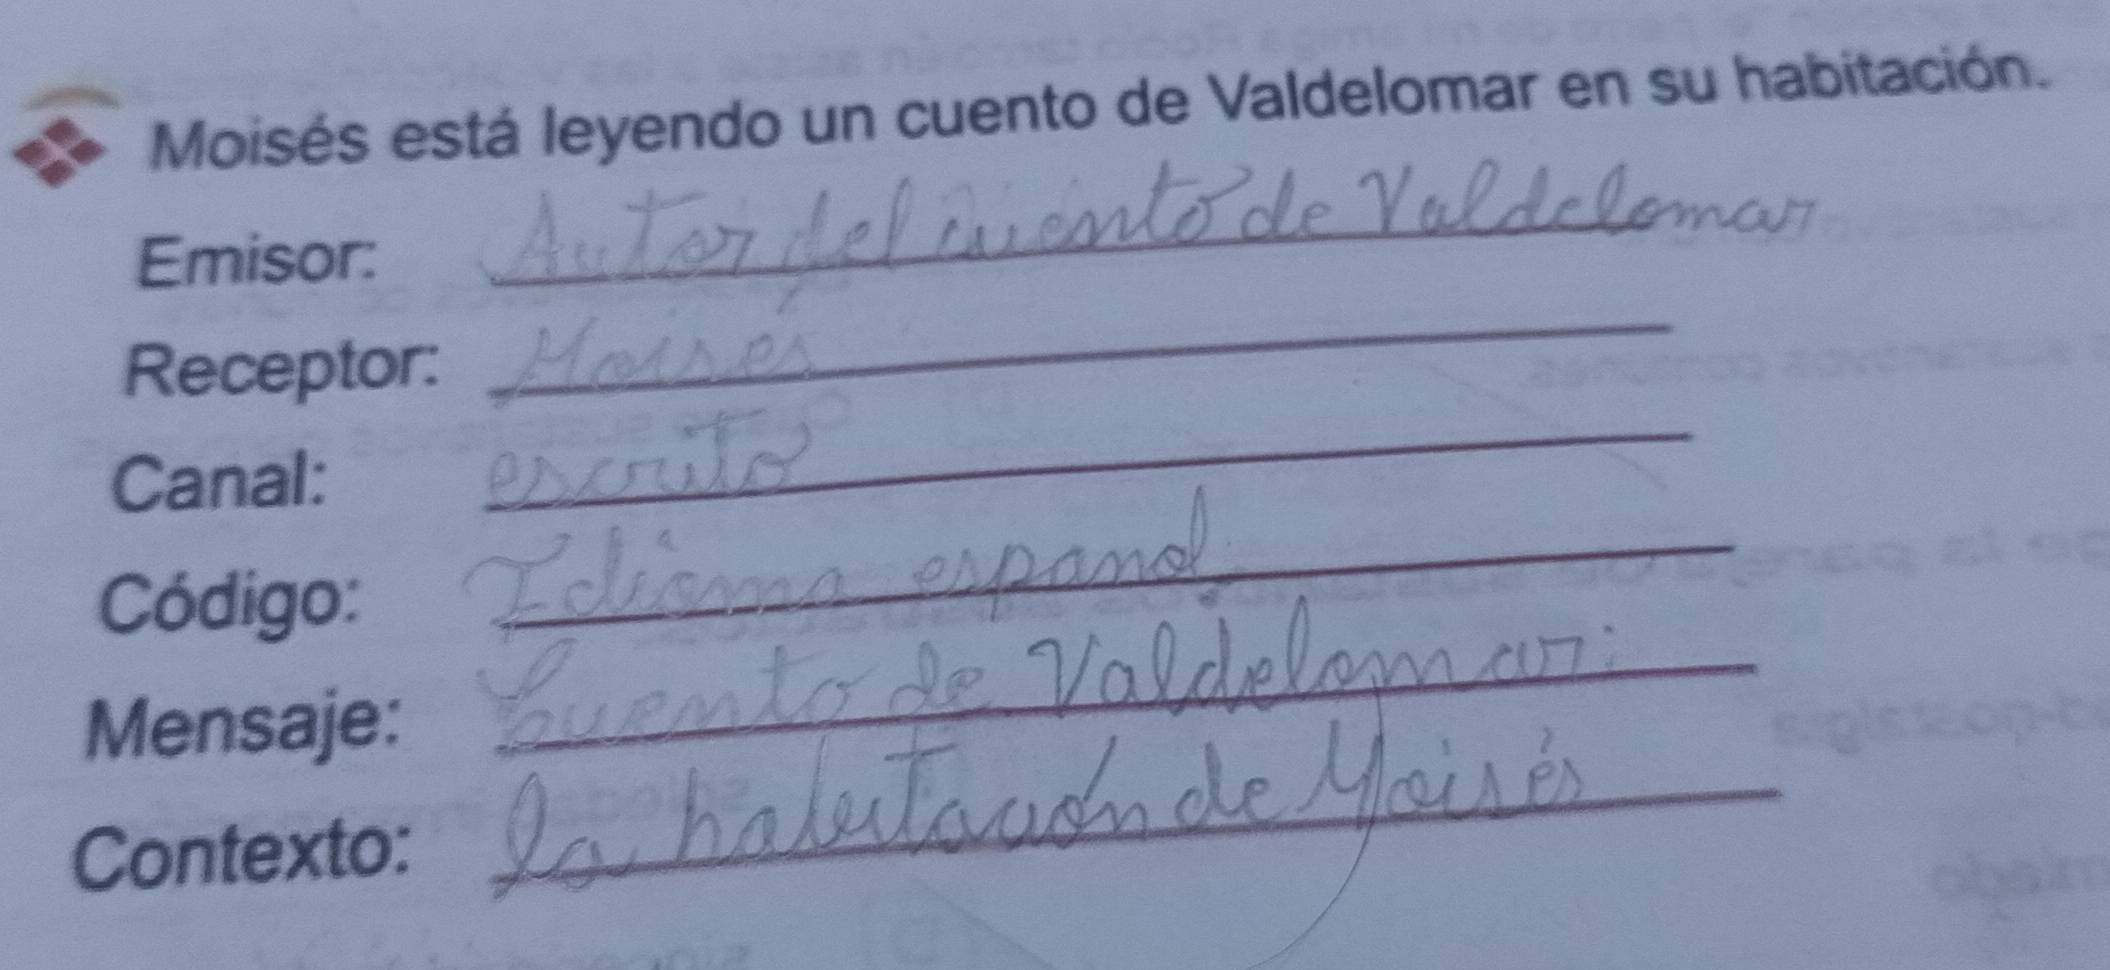 Moisés está leyendo un cuento de Valdelomar en su habitación.
Emisor: Autor del cuento de Valdelomar
Receptor: Moisés
Canal: escrito
Código: Idioma espanol
Mensaje: Cuento de Valdelomar.
Contexto: la habitación de Moisés